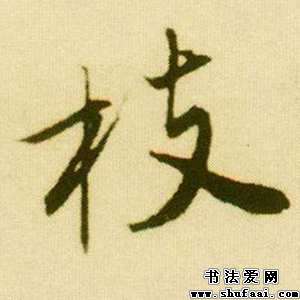 枝
书法爱网
www.shufaai.com